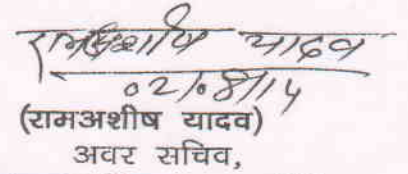 रामअशीष यादव
02/08/14
(रामअशीष यादव)
अवर सचिव,